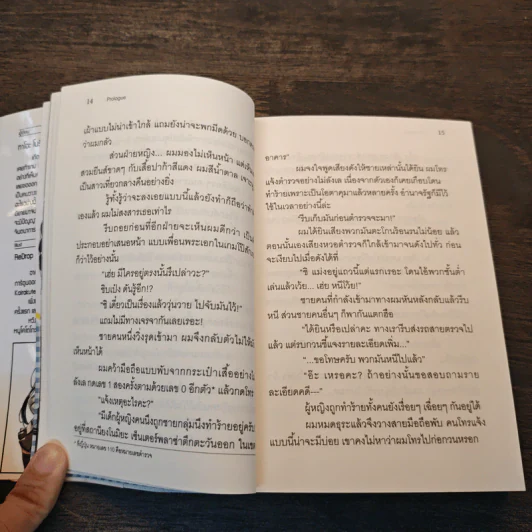 14
Prologue
เผ้าแบบไม่น่าเข้าใกล้ แถมยังน่าจะพกมีดด้วย
ว่าแมกลัว
ส่วนฝ่ายหญิง... ผมมองไม่เห็นหน้า
สวมยีนส์ขาดๆ กับเสื้อปาก้าสีแดง ผมสีน้ำตาล
เป็นสาวเที่ยวกลางคืนอย่างยิ่ง
รู้ทั้งรู้ว่าจะลงเอยแบบนี้แล้วยังทำก็ถือว่าทำ
เองแล้ว ผมไม่สงสารเธอเท่าไร
รีบถอยก่อนที่อีกฝ่ายจะเห็นผมดีกว่า
ประกอบอย่างเสนอหน้า แบบเพื่อนพระเอกในเกม
ก็ว่าไว้อย่างนั้น
"เฮ่ย มีใครอยู่ตรงนั้นรึเปล่าวะ?"
ชิบเป๋ง ดันรู้อีก!?
"ชิ เดี๋ยวเป็นเรื่องแล้ววุ่นวาย ไปจับมันไว้!"
แถมไม่มีทางเจรจากันเลยเรอะ!
ชายคนหนึ่งวิ่งรุดเข้ามา ผมจึงกลับตัวไม่ให้
เห็นหน้าได้
ผมคว้ามือถือแบบพับจากกระเป๋าเสื้ออย่าง
ลังเล กดเลข 1 สองครั้งตามด้วยเลข 0 อีกตัว* แล้วกดโทร
"แจ้งเหตุอะไรคะ?"
"มีเด็กผู้หญิงคนนึงถูกชายกลุ่มนึงทำร้ายอยู่ครับ
อยู่ที่สถานีของโนมิยะ เซ็นเตอร์พลาซ่าตึกตะวันออก
* ที่ญี่ปุ่น หมายเลข 110 คือหมายเลขตำรวจ
15
อาคาร"
ผมจงใจพูดเสียงดังให้ชายเหล่านั้นได้ยิน ผมโทร
แจ้งตำรวจอย่างไม่ลังเล เนื่องจากตัวเองก็เคยเกือบโดน
ทำร้ายเพราะเป็นโอตาคุมาแล้วหลายครั้ง อำนาจรัฐก็มีไว้
ใช้ในเวลาอย่างนี้ล่ะ
"รีบเก็บมันก่อนตำรวจจะมา!"
ผมได้ยินเสียงพวกมันตะโกนโร้อนรนไม่น้อย แล้ว
ตอนนั้นเองเสียงหวอตำรวจก็ใกล้เข้ามาจนดังไปทั่ว ก่อน
จะเงียบไปเมื่อดังได้ที่
"ชิ แม่งอยู่แถวนี้แต่แรกเรอะ โดนไอ้พวกชั้นต่ำ
เล่นแล้วเว้ย... เฮ่ย หนีโว้ย!"
ชายคนที่กำลังเข้ามาทางผมหันหลังกลับแล้วรีบ
หนี ส่วนชายคนอื่นๆ ก็พากันแตกฮือ
"ได้ยินหรือเปล่าคะ ทางเรารีบส่งรถสายตรวจไป
แล้ว แต่รบกวนชี้แจงรายละเอียดเพิ่ม..."
"...ขอโทษครับ พวกมันหนีไปแล้ว"
"อ๊ะ เหรอคะ? ถ้าอย่างนั้นขอสอบถามราย
ละเอียดคดี---"
ผู้หญิงที่ถูกทำร้ายทั้งคนยังเรื่อยๆ เฉื่อยๆ กันอยู่ได้
ผมหมดธุระแล้วจึงวางสายมือถือพับ คนโทรแจ้ง
แบบนี้น่าจะมีบ่อย เขาคงไม่หาว่าผมโทรไปก่อกวนหรอก
ReDrop